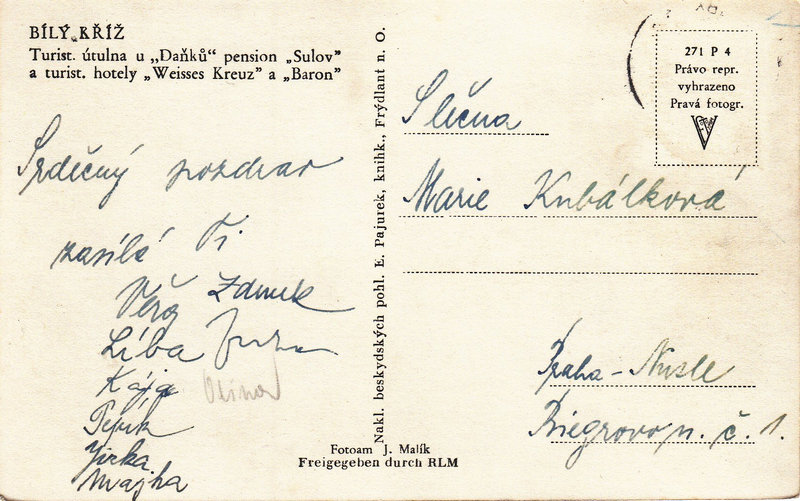 BÍLÝ KŘÍŽ
Turist. útulna u „Daňků“ pension „Sulov”
a turist. hotely „Weisses Kreuz” a „Baron”
Srdečný pozdrav
zasílá Ti
Věra Zdeněk
Líba
Kája
Pepík
Jirka
Nakl. beskydských pohl. E. Pajurek, knihk., Frýdlant n. O.
Fotoam J. Malík
Freigegeben durch RLM
271 P 4
Právo repr.
vyhrazeno
Pravá fotogr.
Slečna
Marie Kubálková
Praha - Nusle
Riegrovo n. č. 1.